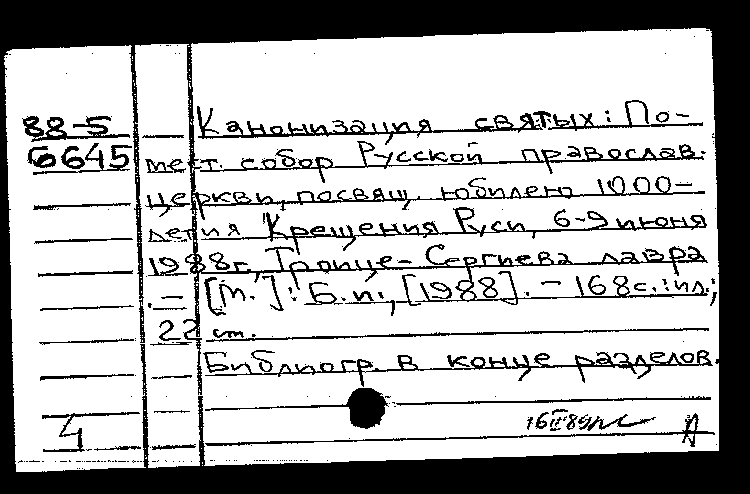 88-5 Канонизация святых: По-
6645 мест. собор Русской православ.
церкви, посвящ. юбилею 1000-
летия Крещения Руси, 6-9 июня
1988г., Троице-Сергиева лавра
. – [М.]: Б.и., [1988]. – 168с.: ил.;
22 см.
Библиогр. в конце разделов.
4